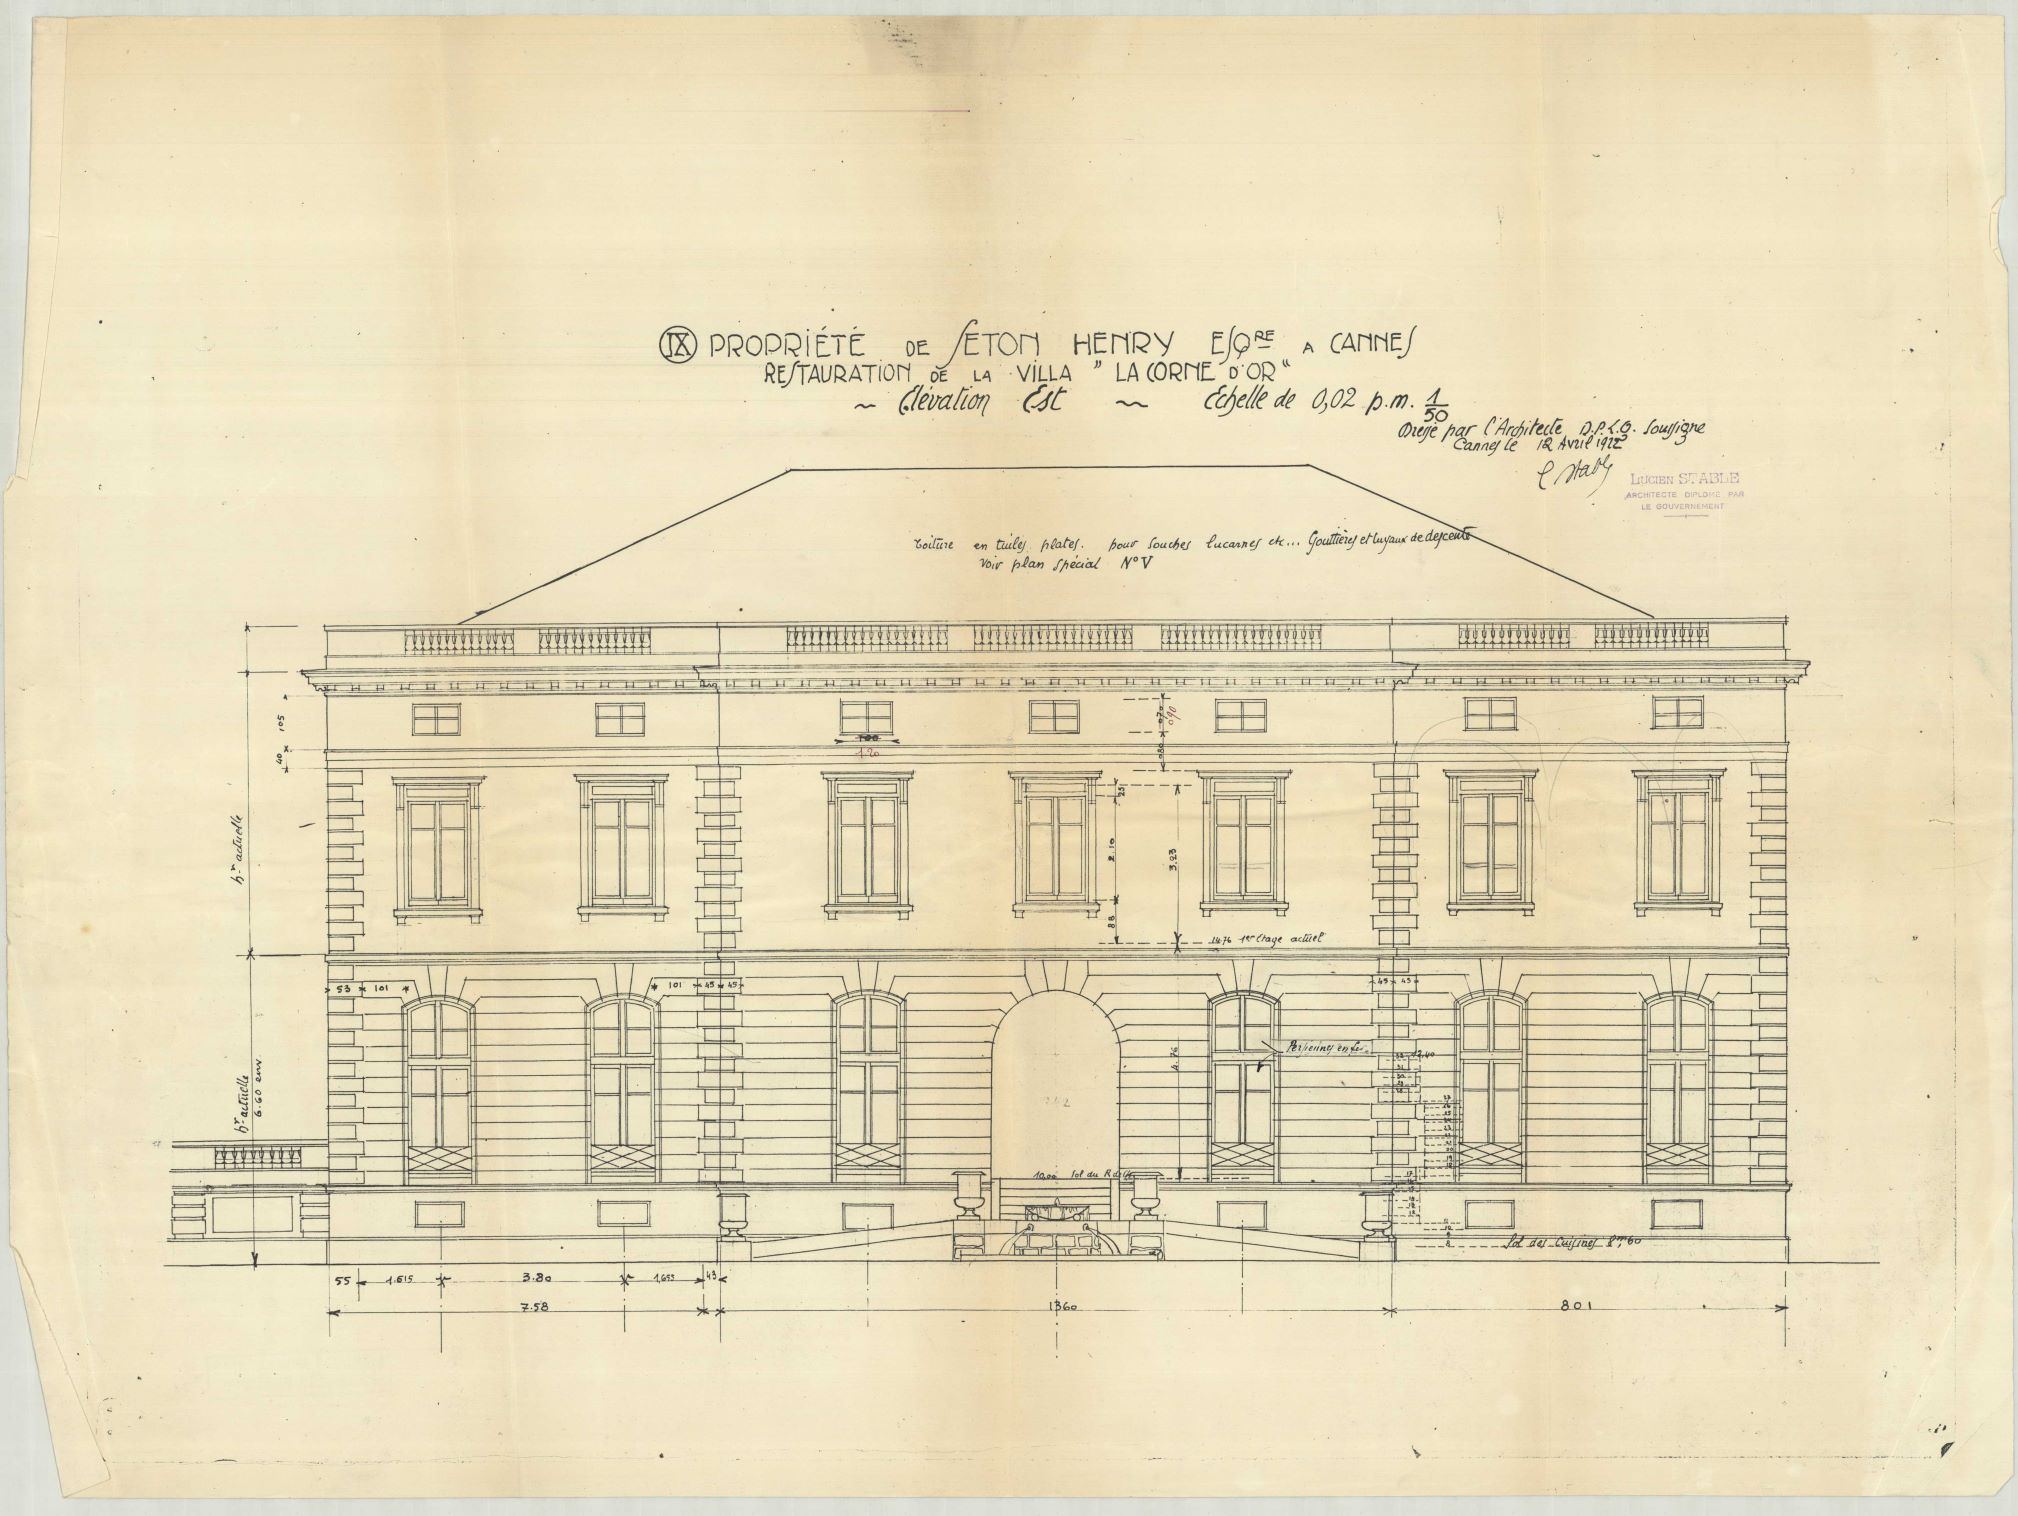 IX PROPRIÉTÉ DE SETON HENRY ESQRE A CANNES
RESTAURATION DE LA VILLA " LA CORNE D'OR "
~ Elévation Est ~ Echelle de 0,02 p.m. 1/50
Dressé par l'Architecte D.P.L.G. Soussigné
Cannes le 12 Avril
L Stable
LUCIEN STABLE
ARCHITECTE DIPLOMÉ PAR
LE GOUVERNEMENT
Toiture en tuiles plates. pour souches lucarnes etc... Gouttières et tuyaux de descente
voir plan spécial N° V
105
40
070
090
080
100
1.20
25
2.10
88
3.23
hr actuelle
14.76 1er Etage actuel
53 101
101 45 45
45 45
4.76
Persiennes en fer
12,40
hr actuelle
6.60 env
10,00 Sol du R de
Sol des Cuisines 8m,60
55 1.615 3.80 1,655 43
7.58 1360 801